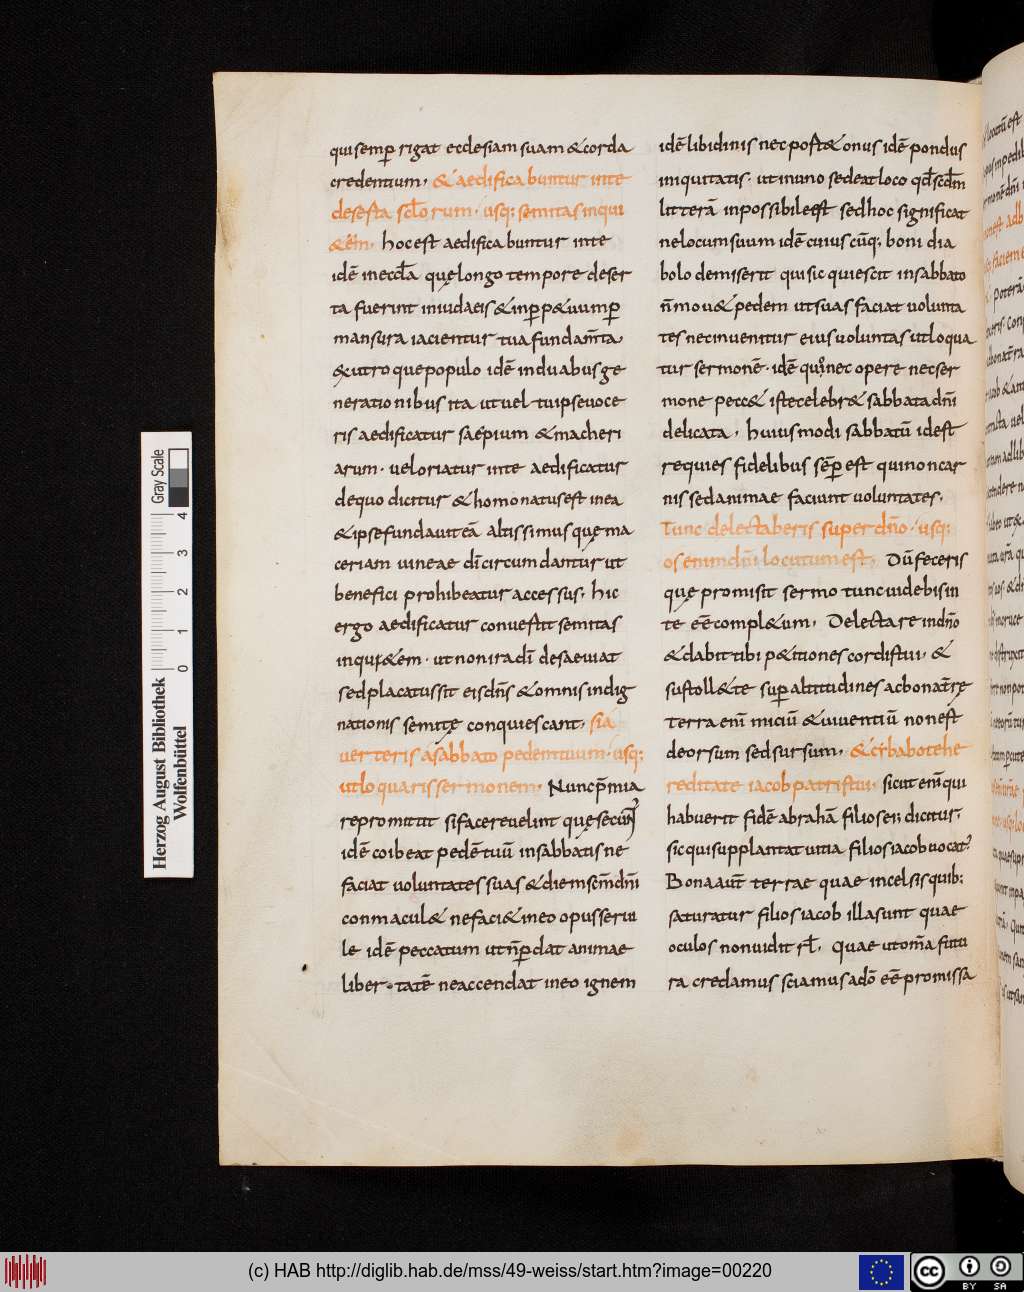 qui semꝑ rigat ecclesiam suam & corda
credentium. & aedificabuntur inte
deserta scl̄orum. usq; semitas in qui
&ē̄m. hoc est aedificabuntur inte
idē in eccl̄a quę longo tempore deser
ta fuerint in iudaeis & inꝑp&uum ꝑ
mansura iacientur tua fundam̄ta
& utroque populo idē in duabus ge
nerationibus ita ut uel tu ipse uoce
ris aedificatur saepium & macheri
arum. uel oriatur in te aedificatur
de quo dicitur & homo natus est in ea
& ipse fundauit eā altissimus quę ma
ceriam uineae dī circumdantur ut
benefici prohibeatur accessus. hic
ergo aedificatur conuestit semitas
in quę&em. ut non ira dī desaeuiat
sed placatus sit eis dn̄s & omnis indig
nationis semitę conquiescant. si a
uerteris a sabbato pedem tuum. usq;
ut loquaris sermonem. Nunc p̄mia
repromittit si facere uelint quę secun̄
idē coibeat pedē tuū in sabbatis ne
faciat uoluntates suas & diem scm̄ dn̄i
conmacul& ne faci& in eo opus serui
le idē peccatum ut n̄ ꝑdat animae
liber tatē ne accendat in eo ignem
idē libidinis nec post& onus idē pondus
iniquitatis. ut in uno sedeat loco qd̄ scd̄m
litterā inpossibile est sed hoc significat
ne locum suum idē cuiuscūq; boni dia
bolo demiserit qui sic quiescit in sabbato
n̄ mou& pedem ut suas faciat uolunta
tes nec inuenitur eius uoluntas ut loqua
tur sermonē. idē quo nec opere nec ser
mone pecc& iste celebr& sabbata dn̄i
delicata. huiusmodi sabbatū idest
requies fidelibus sēꝑ est qui non car
nis sed animae faciunt uoluntates.
Tunc delectaberis super dn̄o. usq;
os enim dn̄i locutum est. Dū feceris
quę promisit sermo tunc uidebis in
te eē compl&um. Delectare in dn̄o
& dabit tibi p&itiones cordis tui. &
sustoll& te suꝑ altitudines ac bona tr̄ę
terra eni̅ miciū & uiuentiū non est
deorsum sed sursum. & cibabo te he
reditate iacob patris tui. sicut eni̅ qui
habuerit fidē abrahā filios ei; dicitur.
sic qui supplantat uitia filios iacob uocat᷑
Bona aut̄ terrae quae in celsis quib;
saturatur filios iacob illa sunt quae
oculos non uidit rl̄. quae ut om̄a futu
ra credamus sciamus a dō eē promissa
Herzog August Bibliothek
Wolfenbüttel
0 1 2 3 4
Gray Scale
(c) HAB http://diglib.hab.de/mss/49-weiss/start.htm?image=00220
cc BY SA